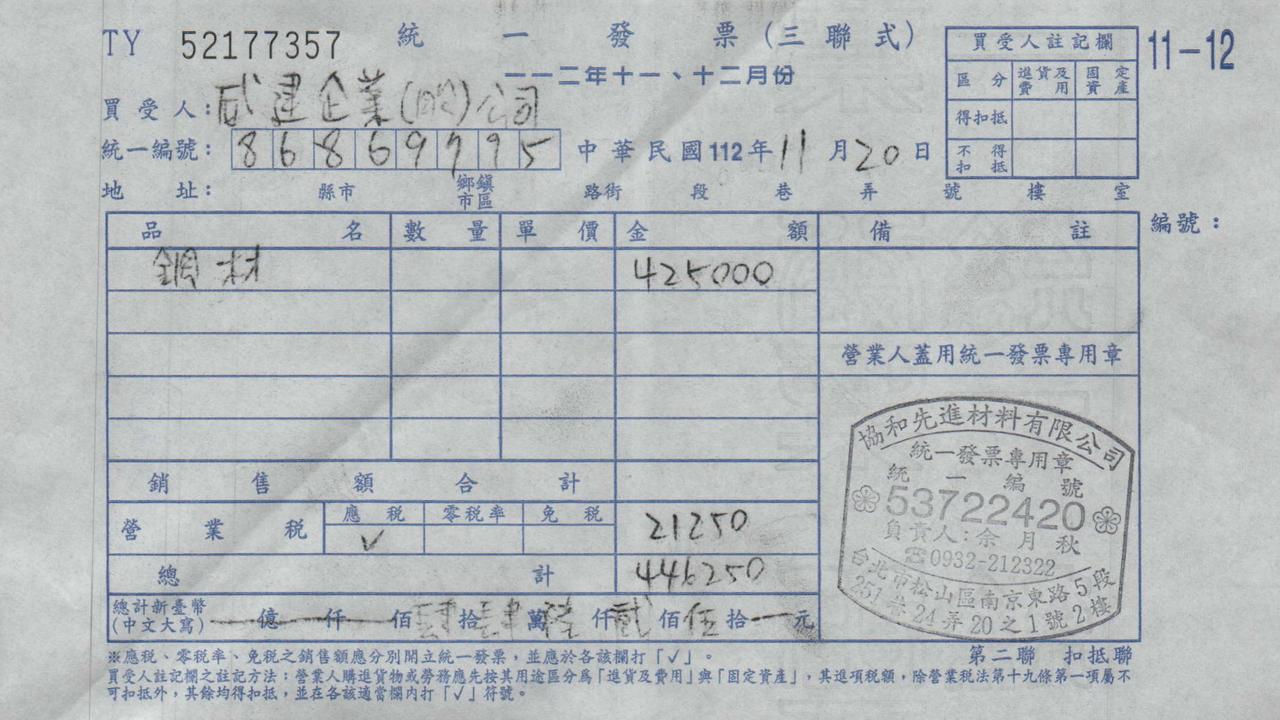 TY 52177357 統一發票(三聯式)
一一二年十一、十二月份
11-12
買受人註記欄
區分 進貨及費用 固定資產
得扣抵
不得扣抵
買受人: 威建企業(股)公司
統一編號: 86869995 中華民國112年11月20日
地址: 縣市 鄉鎮市區 路街 段 巷 弄 號 樓 室
品名 數量 單價 金額 備註 編號:
鋼材 425000
營業人蓋用統一發票專用章
銷售額合計
營業稅 應稅 零稅率 免稅 21250
✓
總計 446250
總計新臺幣(中文大寫) 億 仟 佰 肆 拾 肆 萬 陸 仟 貳 佰 伍 拾 元
協和先進材料有限公司
統一發票專用章
統一編號
53722420
負責人:余月秋
☎0932-212322
台北市松山區南京東路5段
251巷24弄20之1號2樓
※應稅、零稅率、免稅之銷售額應分別開立統一發票,並應於各該欄打「✓」。
第二聯 扣抵聯
買受人註記欄之註記方法:營業人購進貨物或勞務應先按其用途區分為「進貨及費用」與「固定資產」,其進項稅額,除營業稅法第十九條第一項屬不
可扣抵外,其餘均得扣抵,並在各該適當欄內打「✓」符號。